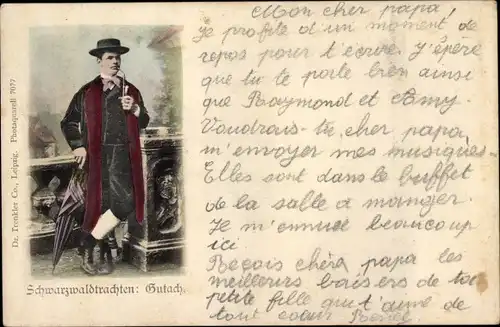 Mon cher papa!
Je profite d'un moment de
repos pour t'ecrire. J'éspère
que tu te porte bien ainsi
que Raymond et Amy.
Voudrais-tu, cher papa,
m'envoyer mes musiques.
Elles sont dans le buffet
de la salle a manger.
Je m'ennue beaucoup
ici
Reçois chèrs papa les
meilleurs baisers de ta
petite fille qui t'aime de
tout coeur
Dr. Trenkler Co., Leipzig. Photaquarell 7077
Schwarzwaldtrachten: Gutach.